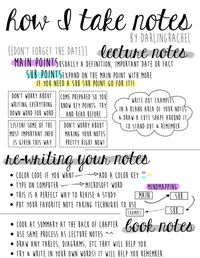 how I take notes
BY DARLINGRACHEL
{DON'T FORGET THE DATE}
lecture notes
MAIN POINTS USUALLY A DEFINITION, IMPORTANT DATE OR FACT
SUB POINTS EXPAND ON THE MAIN POINT WITH MORE
IF YOU NEED A SUB SUB POINT GO FOR IT!
DON'T WORRY ABOUT
WRITING EVERYTHING
DOWN WORD FOR WORD
COME PREPARED SO YOU
KNOW KEY POINTS. TRY
AND READ BEFORE.
LISTEN! SOME OF THE
MOST IMPORTANT INFO
IS GIVEN THIS WAY
DON'T WORRY ABOUT
MAKING YOUR NOTES
PRETTY RIGHT NOW!
WRITE OUT EXAMPLES
IN A BLANK AREA OF YOUR NOTES
& DRAW A CUTE SHAPE AROUND IT
TO STAND OUT & REMEMBER.
re-writing your notes
COLOR CODE IF YOU WANT ADD A COLOR KEY
TYPE ON COMPUTER MICROSOFT WORD
THIS IS A PERFECT WAY TO REVISE & STUDY
PUT YOUR FAVORITE NOTE TAKING TECHNIQUE TO USE
MINDMAPPING
MAIN
SUB
EXAMPLE
SUB
book notes
LOOK AT SUMMARY AT THE BACK OF CHAPTER
USE SAME PROCESS AS LECTURE NOTES ^^
DRAW ANY TABLES, DIAGRAMS, ETC THAT WILL HELP YOU
TRY & WRITE IN YOUR OWN WORDS! IT WILL HELP YOU REMEMBER.